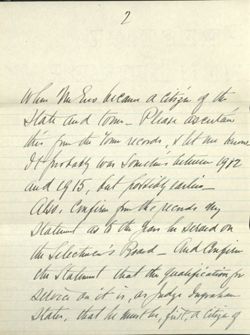 2
When Mr Eno became a citizen of the
State and town — Please ascertain
this from the Town records, & let me know
It probably was sometime between 1912
and 1915, but possibly earlier —
Also, confirm from the records my
statement as to the years he served on
the Selectmen's Board — And confirm
the statement that the qualification for
service on it is, as Judge
States, that he must be, first, a citizen of